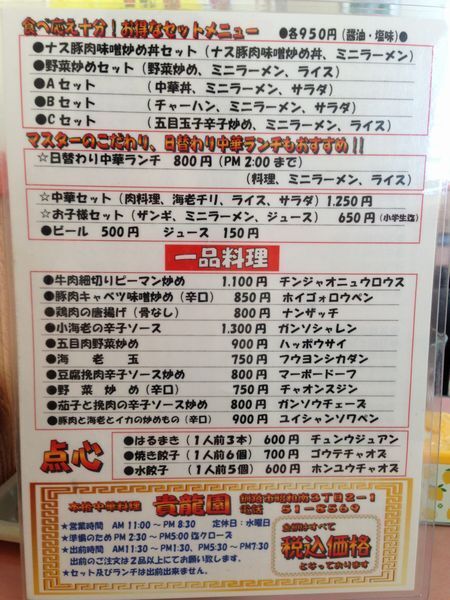 食べ応え十分!お得なセットメニュー ●各950円(醤油・塩味)●
●ナス豚肉味噌炒め丼セット(ナス豚肉味噌炒め丼、ミニラーメン)
●野菜炒めセット(野菜炒め、ミニラーメン、ライス)
●Aセット (中華丼、ミニラーメン、サラダ)
●Bセット (チャーハン、ミニラーメン、サラダ)
●Cセット (五目玉子辛子炒め、ミニラーメン、ライス)
マスターのこだわり、日替わり中華ランチもおすすめ!!
☆日替わり中華ランチ 800円(PM2:00まで)
(料理、ミニラーメン、ライス)
☆中華セット(肉料理、海老チリ、ライス、サラダ)1.250円
☆お子様セット(ザンギ、ミニラーメン、ジュース) 650円(小学生迄)
●ビール 500円 ジュース 150円
一品料理
●牛肉細切りピーマン炒め 1.100円 チンジャオニュウロウス
●豚肉キャベツ味噌炒め(辛口) 850円 ホイゴォロウペン
●鶏肉の唐揚げ(骨なし) 800円 ナンザッチ
●小海老の辛子ソース 1.300円 ガンソシャレン
●五目肉野菜炒め 900円 ハッポウサイ
●海老玉 750円 フウヨンシカダン
●豆腐挽肉辛子ソース炒め 800円 マーボードーフ
●野菜炒め(辛口) 750円 チャオンスジン
●茄子と挽肉の辛子ソース炒め 800円 ガンソウチェーズ
●豚肉と海老とイカの炒めもの(辛口) 900円 ユイシャンソワペン
点心
●はるまき(1人前3本) 600円 チュンウジュアン
●焼き餃子(1人前6個) 700円 ゴウテチャオズ
●水餃子(1人前5個) 600円 ホンユウチャオズ
本格中華料理 貴龍園 釧路市昭和南3丁目2-1
電話 51-8569
★営業時間 AM11:00~PM8:30 定休日:水曜日
★準備のためPM2:30~PM5:00迄クローズ
★出前時間 AM11:30~PM1:30、PM5:30~PM7:30
出前のご注文は2品以上にてお願い致します。
★セット及びランチは出前出来ません。
金額はすべて
税込価格
となっております